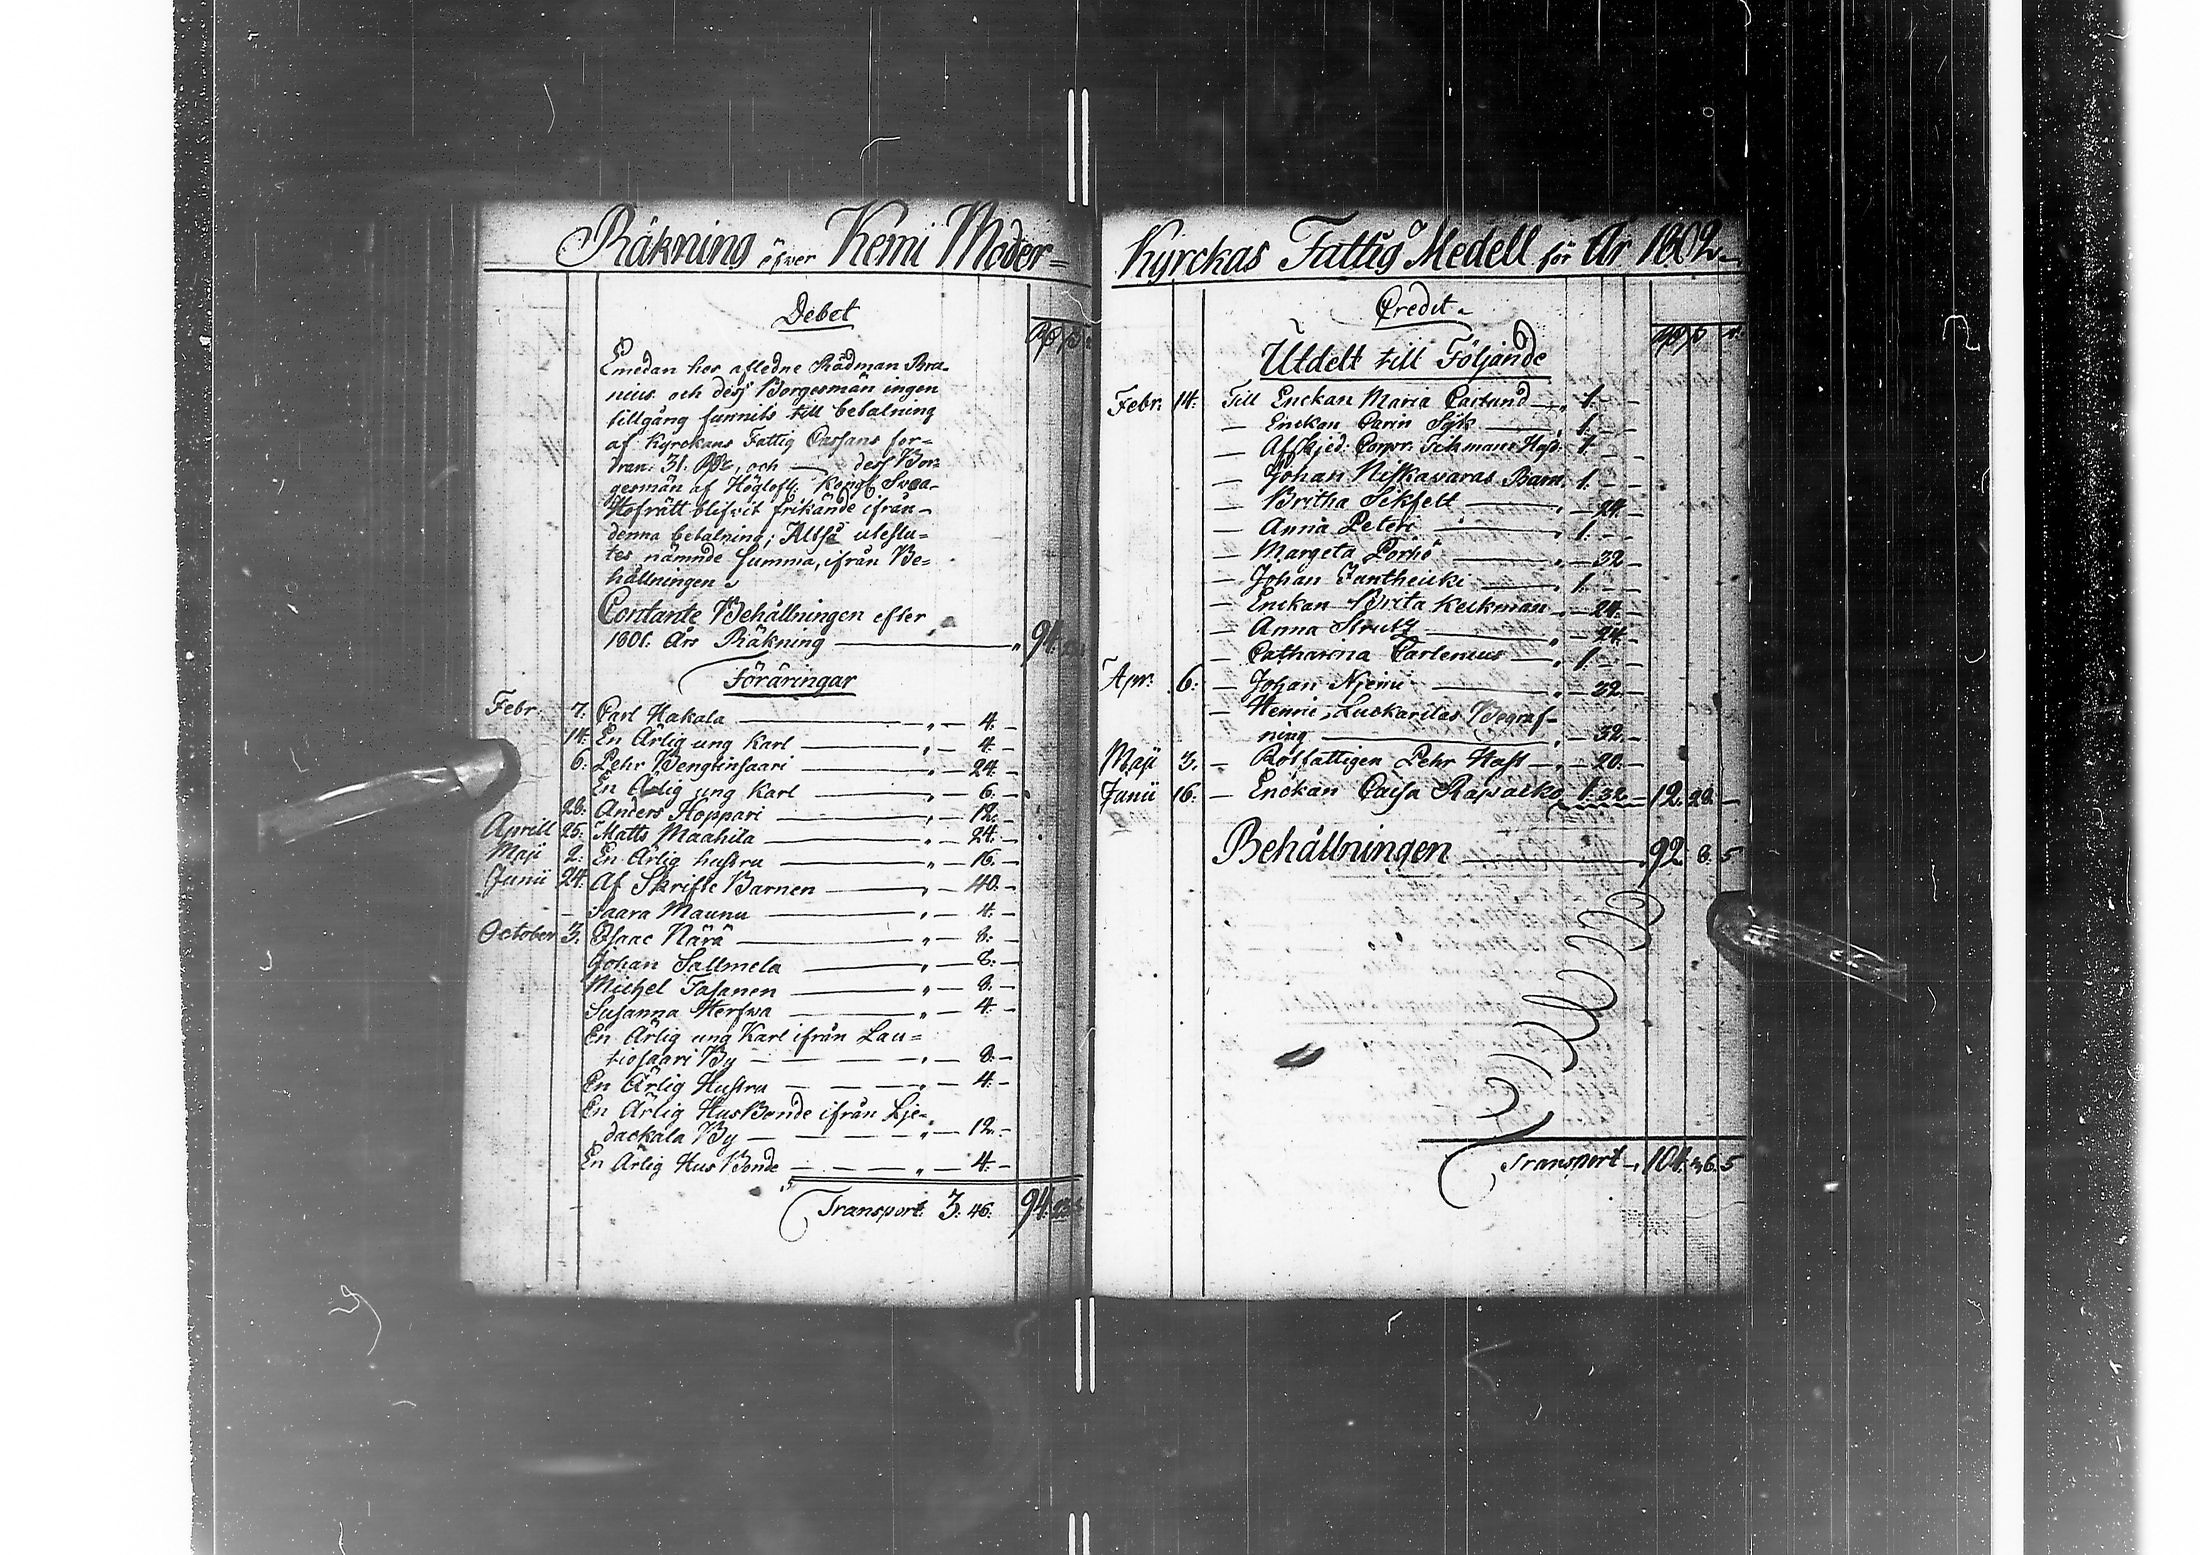 Räkning öfver Kemi Moder=
Debet
Emedan hos afledne Rådman Bra-
nius och dess Borgesmän ingen
tillgång funnits till betalning
af Kyrckans Fattig Cassans for=
dran: 31. Rdr, och — dess Bor=
gesmän af Höglofl. Kongl. Svea-
Hofrätt blifvit frikände ifrån
denna betalning; Altså uteslu=
tes nämnde Summa, ifrån Be=
hållningen.
Contante Behållningen efter
1801. års Räkning — 94.
Föräringar
Febr. 7. Carl Hakala — 4. —
14. En Ärlig ung Karl — 4. —
6. Pehr Wenglinsaari — 24. —
En Ärlig ung Karl — 6. —
28. Anders Hoppari — 12. —
Aprill 25. Matts Maahita — 24. —
Maji 2. En Ärlig hustru — 16. —
Junii 24. Af Skrifte Barnen — 40. —
— Saara Maunu — 4. —
October 3. Isaac Närä — 8. —
Johan Sallmela — 8. —
Michel Tasanen — 8. —
Susanna Herfwa — 4. —
En Ärlig ung Karl ifrån Lau=
tiosaari By — 8. —
En Ärlig Hustru — 4. —
En Ärlig HusBonde ifrån Lje=
dackala By — 12. —
En Ärlig HusBonde — 4. —
Transport 3. 46. 94.
Kyrckas Fattig Medell för År 1802.
Credit.
Utdelt till Följande
Febr: 14. Till Enckan Maria Castund — 1. —
— Enckan Carin Sÿk — 1. —
— Afskjed: Corpr. Tihmans Hust. 1. —
— Johan Niskavaras Barn 1. —
— Britha Sikfelt — 24. —
— Anna Peteri — 1. —
— Margeta Porhö — 32 —
— Johan Juntheicki — 1. —
— Enckan Brita Keckman — 24. —
— Anna Strutz — 24. —
— Catharina Carlenius — 1. —
Apr: 6. — Johan Njemi — 32. —
— Henric Luokarilas Begraf=
ning — 32. —
Maji 3. — Rotfattigen Pehr Hast — 20. —
Junii 16. — Enckan Caisa Rawaiko 1. 32. — 12. 28. —
Behållningen — 92. 8. 5
Transport — 104. 36. 5